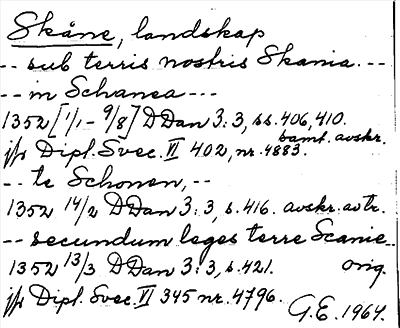 Skåne, landskap
-- sub terris nostris Skania. --
-- in Schanea ---
1352 [1/1 - 9/8] DDan 3:3, ss. 406, 410.
samt. avskr.
jfr Dipl. Svec. VI 402, nr. 4883.
-- te Schonen, --
1352 14/2 DDan 3:3, s. 416. avskr. av tr.
-- secundum leges terre Scanie --
1352 13/3 DDan 3:3, s. 421. orig.
jfr Dipl. Svec. VI 345 nr. 4796.
G.E. 1964.